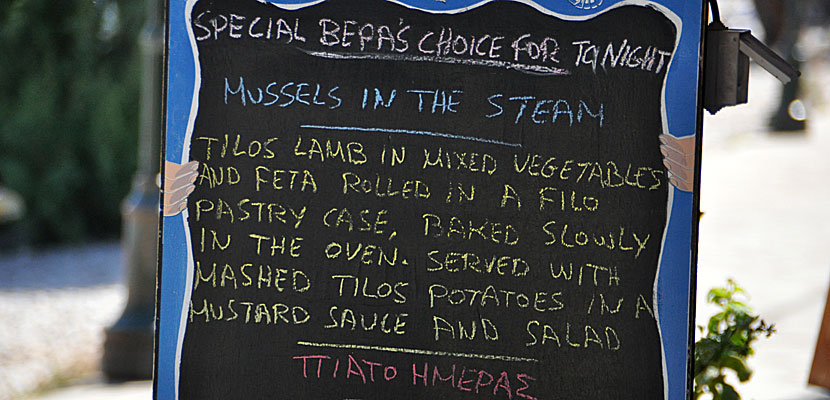 SPECIAL BEPA'S CHOICE FOR TONIGHT
MUSSELS IN THE STEAM
TILOS LAMB IN MIXED VEGETABLES
AND FETA ROLLED IN A FILO
PASTRY CASE, BAKED SLOWLY
IN THE OVEN. SERVED WITH
MASHED TILOS POTATOES IN A
MUSTARD SAUCE AND SALAD
ΠΙΑΤΟ ΗΜΕΡΑΣ